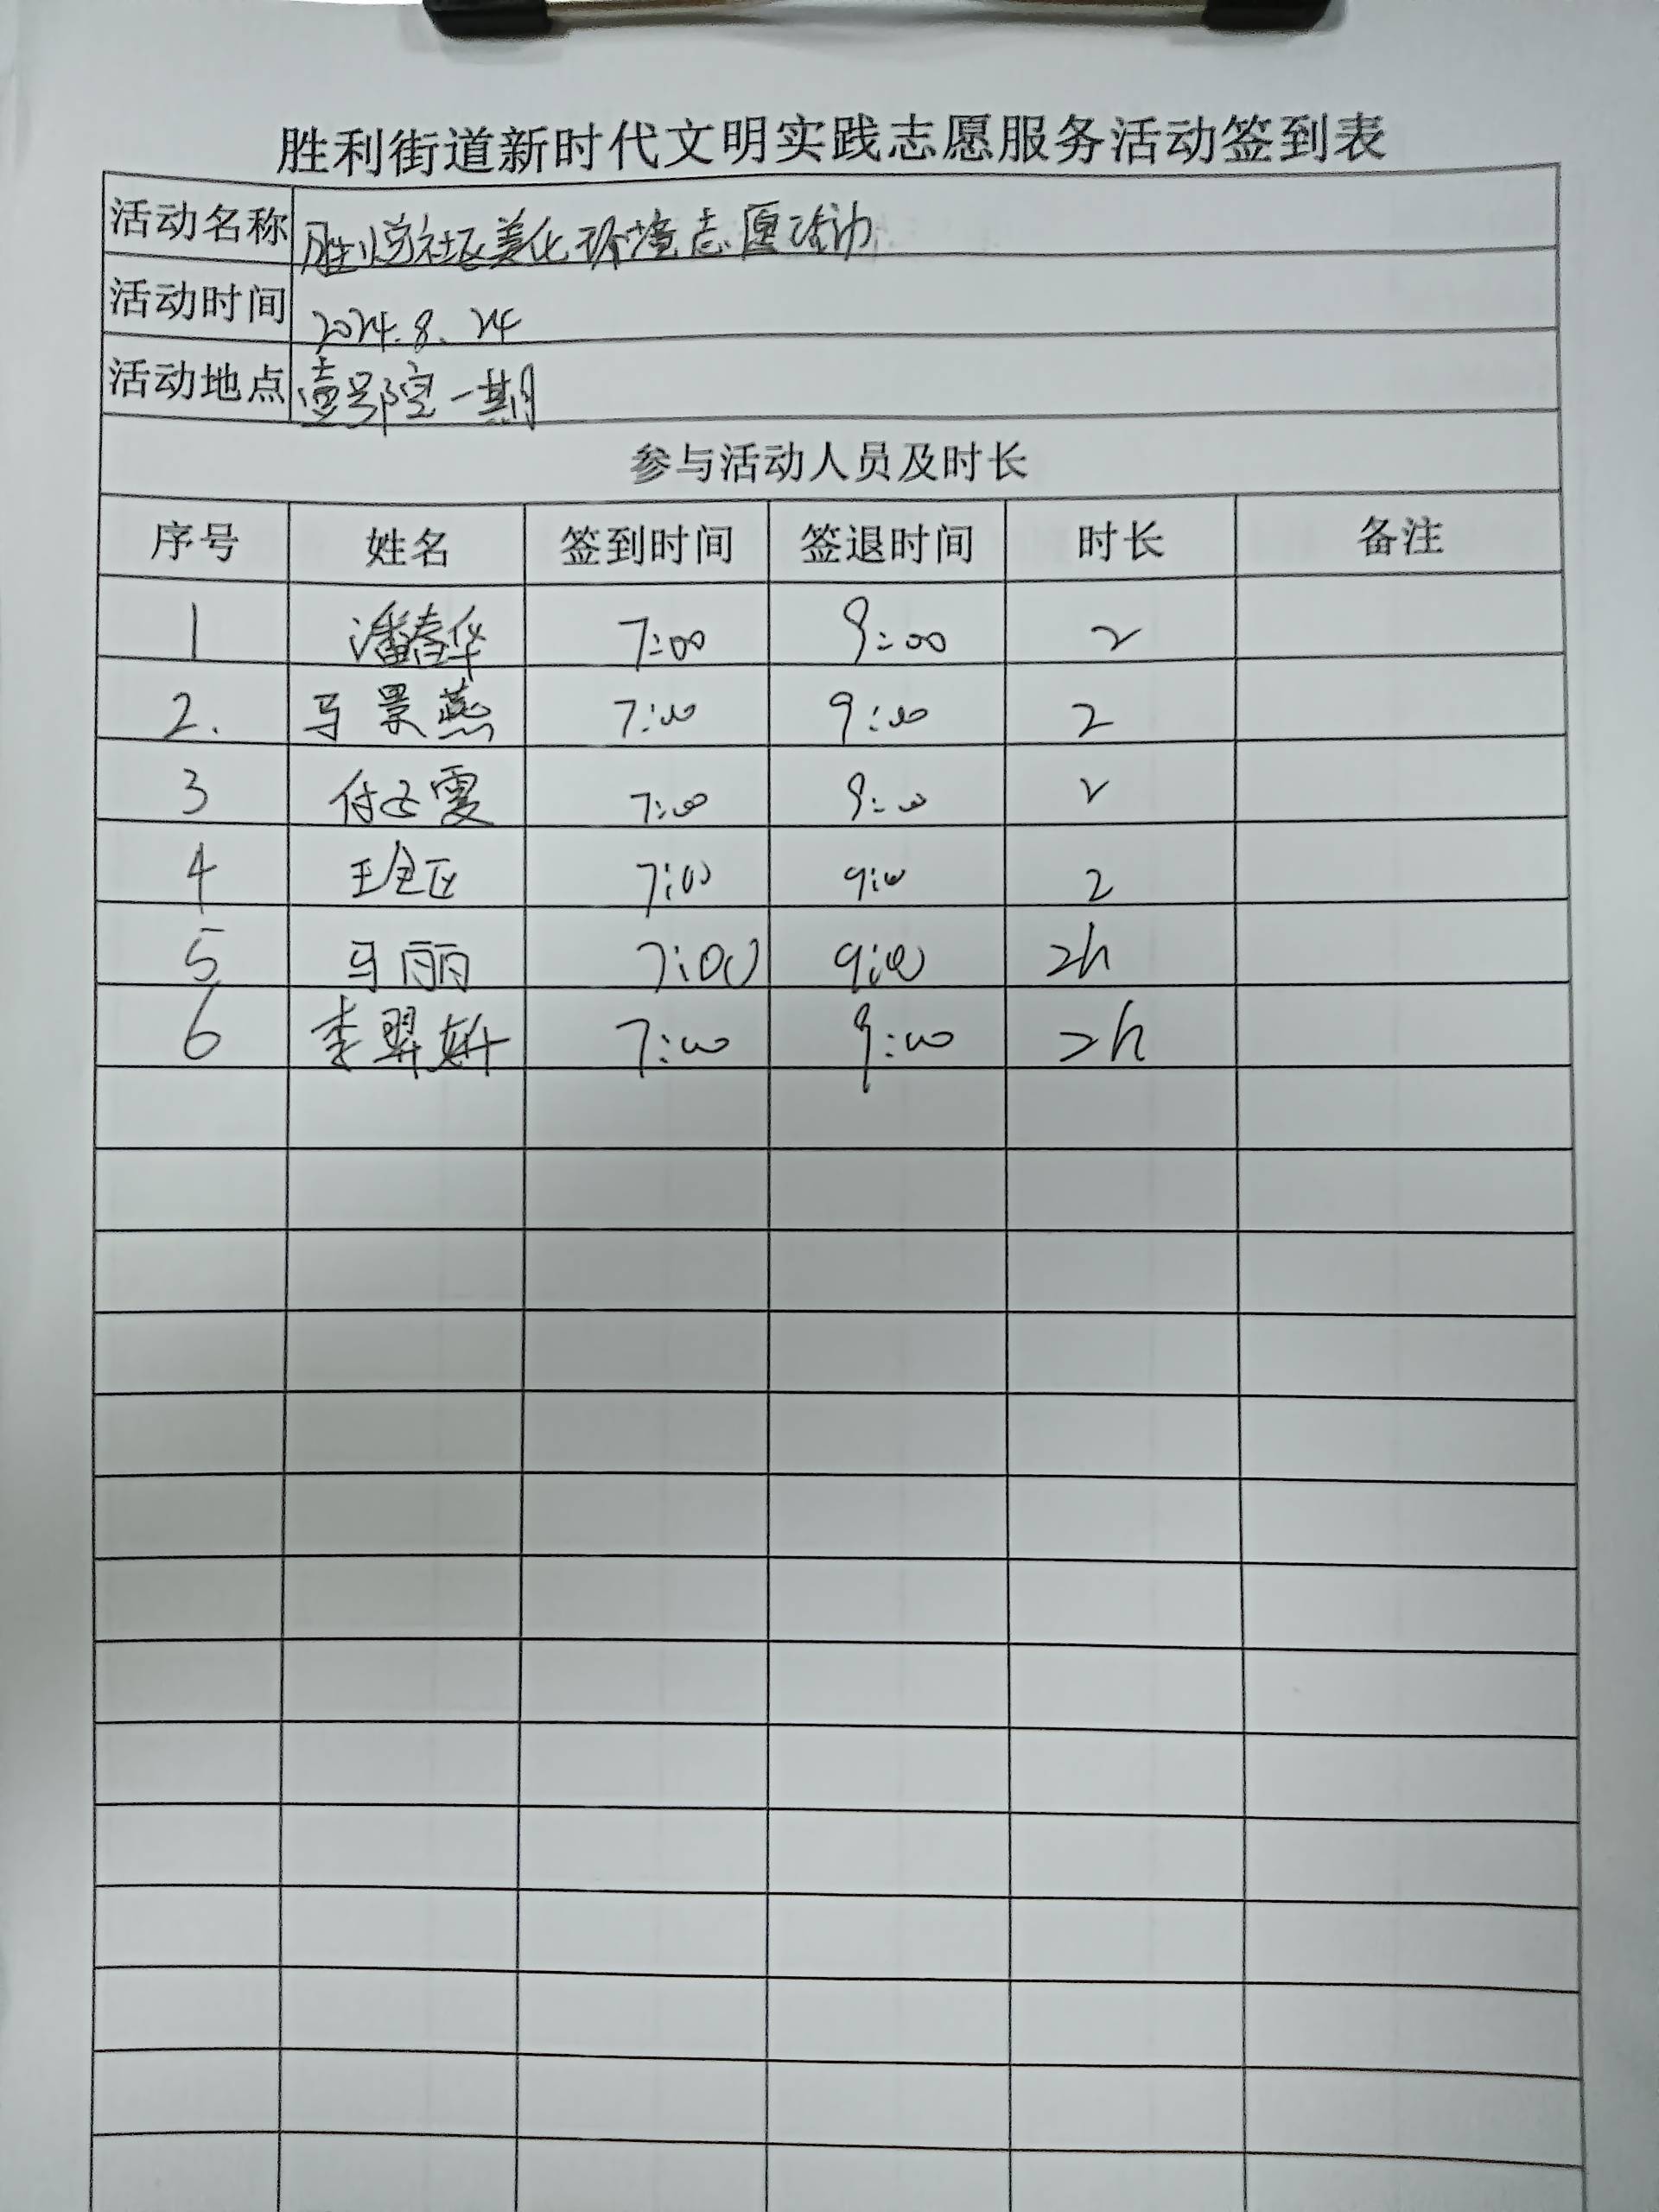 胜利街道新时代文明实践志愿服务活动签到表
活动名称 社区美化环境志愿活动
活动时间 2024.8.24
活动地点 壹号院一期
参与活动人员及时长
序号 姓名 签到时间 签退时间 时长 备注
1 潘春华 7:00 9:00 2
2. 马景燕 7:00 9:00 2
3 付 霞 7:00 9:00 2
4 王 7:00 9:00 2
5 马丽 7:00 9:00 2h
6 李翠妍 7:00 9:00 2h